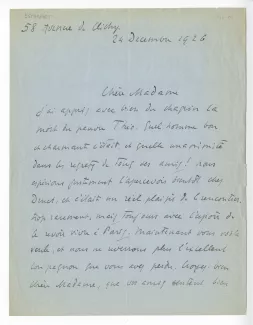 58 Avenue de Clichy
24 Decembre 1926
Chère Madame
J'ai appris avec bien du chagrin la
mort du pauvre Théo. Quel homme bon
et charmant c'était et quelle unanimité
dans les regrets de tous ses amis! Nous
espérions l'apercevoir bientôt chez
Druet, et c'était un réel plaisir de le rencontrer
trop rarement, mais toujours avec l'espoir de
le revoir vivre à Paris. Maintenant vous voilà
seule, et nous ne reverrons plus l'excellent
compagnon que vous avez perdu. Croyez bien
chère Madame, que vos amis sentent bien